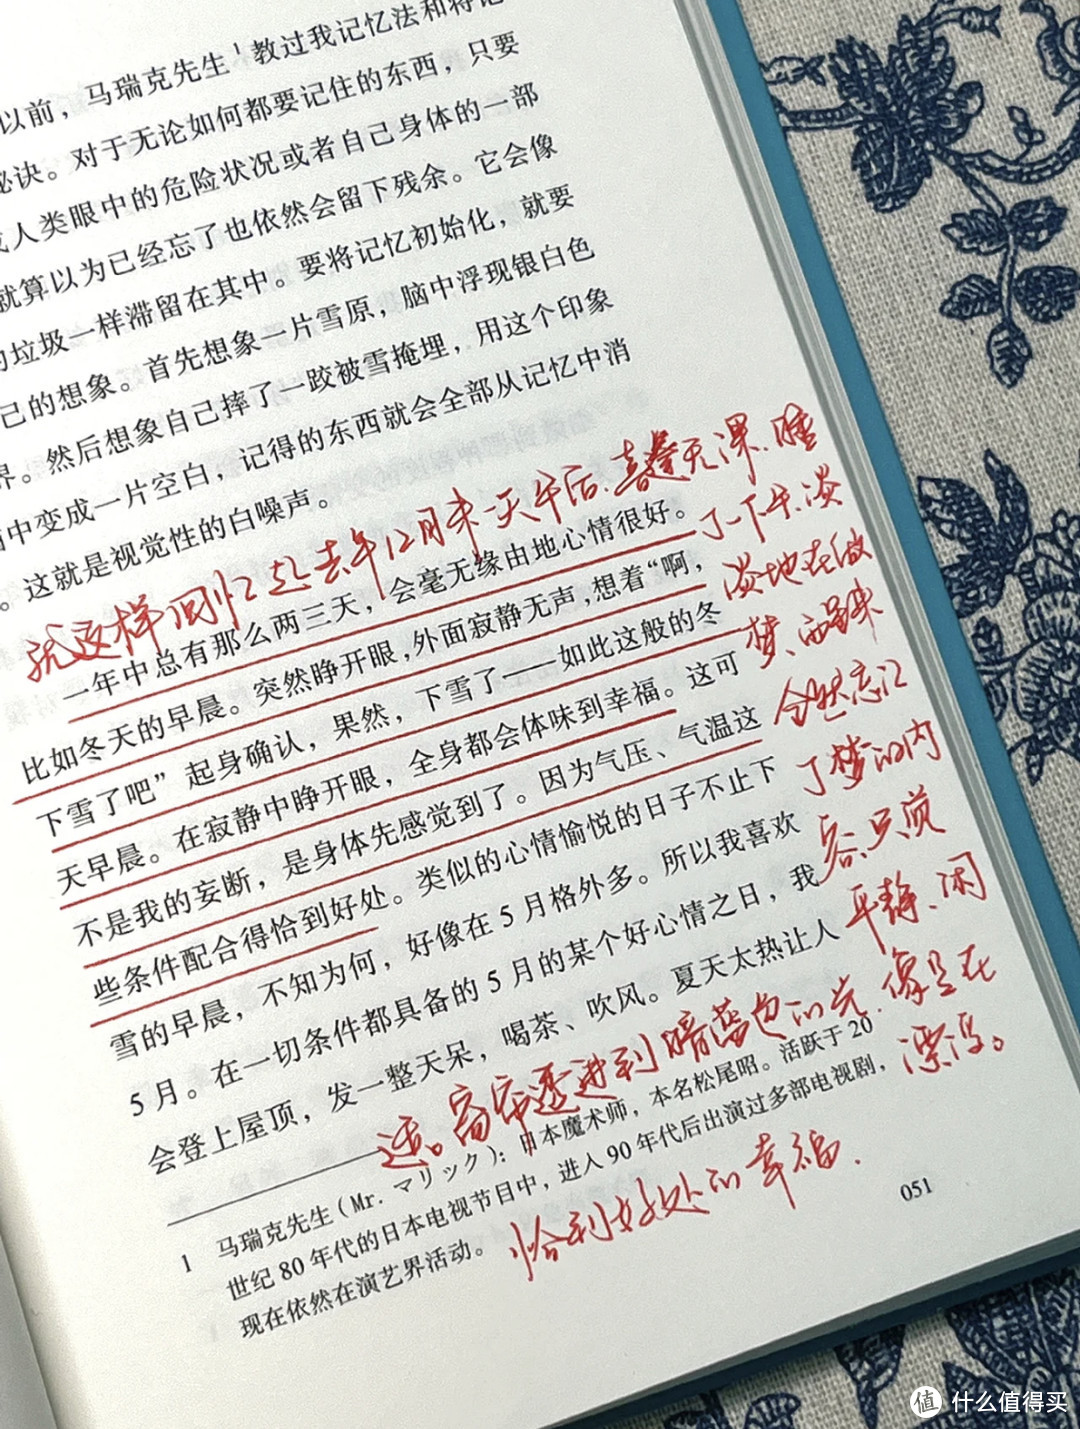 以前，马瑞克先生¹教过我记忆法和将记
秘诀。对于无论如何都要记住的东西，只要
人类眼中的危险状况或者自己身体的一部
就算以为已经忘了也依然会留下残余。它会像
垃圾一样滞留在其中。要将记忆初始化，就要
己的想象。首先想象一片雪原，脑中浮现银白色
界。然后想象自己摔了一跤被雪掩埋，用这个印象
中变成一片空白，记得的东西就会全部从记忆中消
。这就是视觉性的白噪声。
就这样回忆起去年12月末一天午后、无课、睡
了一下午、淡
淡地在做
梦、醒来
全然忘记
了梦的内
容、只觉
平静、闲
适。窗帘透进到暗蓝色的光，像是在
漂浮。
恰到好处的幸福.
一年中总有那么两三天，会毫无缘由地心情很好。
比如冬天的早晨。突然睁开眼，外面寂静无声，想着“啊，
下雪了吧”起身确认，果然，下雪了——如此这般的冬
天早晨。在寂静中睁开眼，全身都会体味到幸福。这可
不是我的妄断，是身体先感觉到了。因为气压、气温这
些条件配合得恰到好处。类似的心情愉悦的日子不止下
雪的早晨，不知为何，好像在5月格外多。所以我喜欢
5月。在一切条件都具备的5月的某个好心情之日，我
会登上屋顶，发一整天呆，喝茶、吹风。夏天太热让人
1 马瑞克先生（Mr. マリック）：日本魔术师，本名松尾昭。活跃于20
世纪80年代的日本电视节目中，进入90年代后出演过多部电视剧，
现在依然在演艺界活动。
051
值 什么值得买